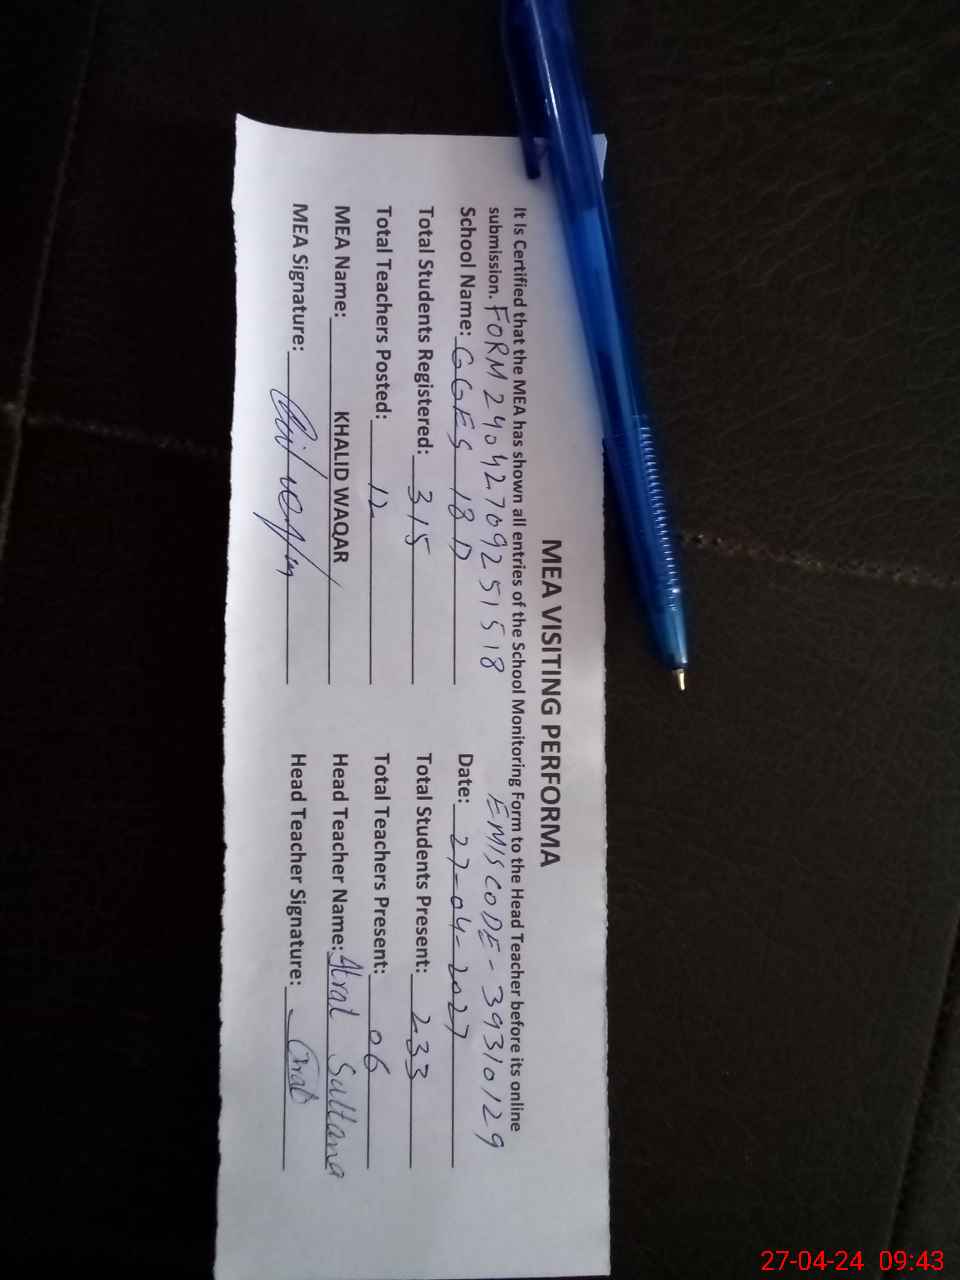 MEA VISITING PERFORMA
It Is Certified that the MEA has shown all entries of the School Monitoring Form to the Head Teacher before its online
submission. FORM24042709251518 EMISCODE-39310129
School Name: GGES 18 D Date: 27-04-2027
Total Students Registered: 315 Total Students Present: 233
Total Teachers Posted: 12 Total Teachers Present: 06
MEA Name: KHALID WAQAR Head Teacher Name: Sultana
MEA Signature: Head Teacher Signature:
27-04-24 09:43